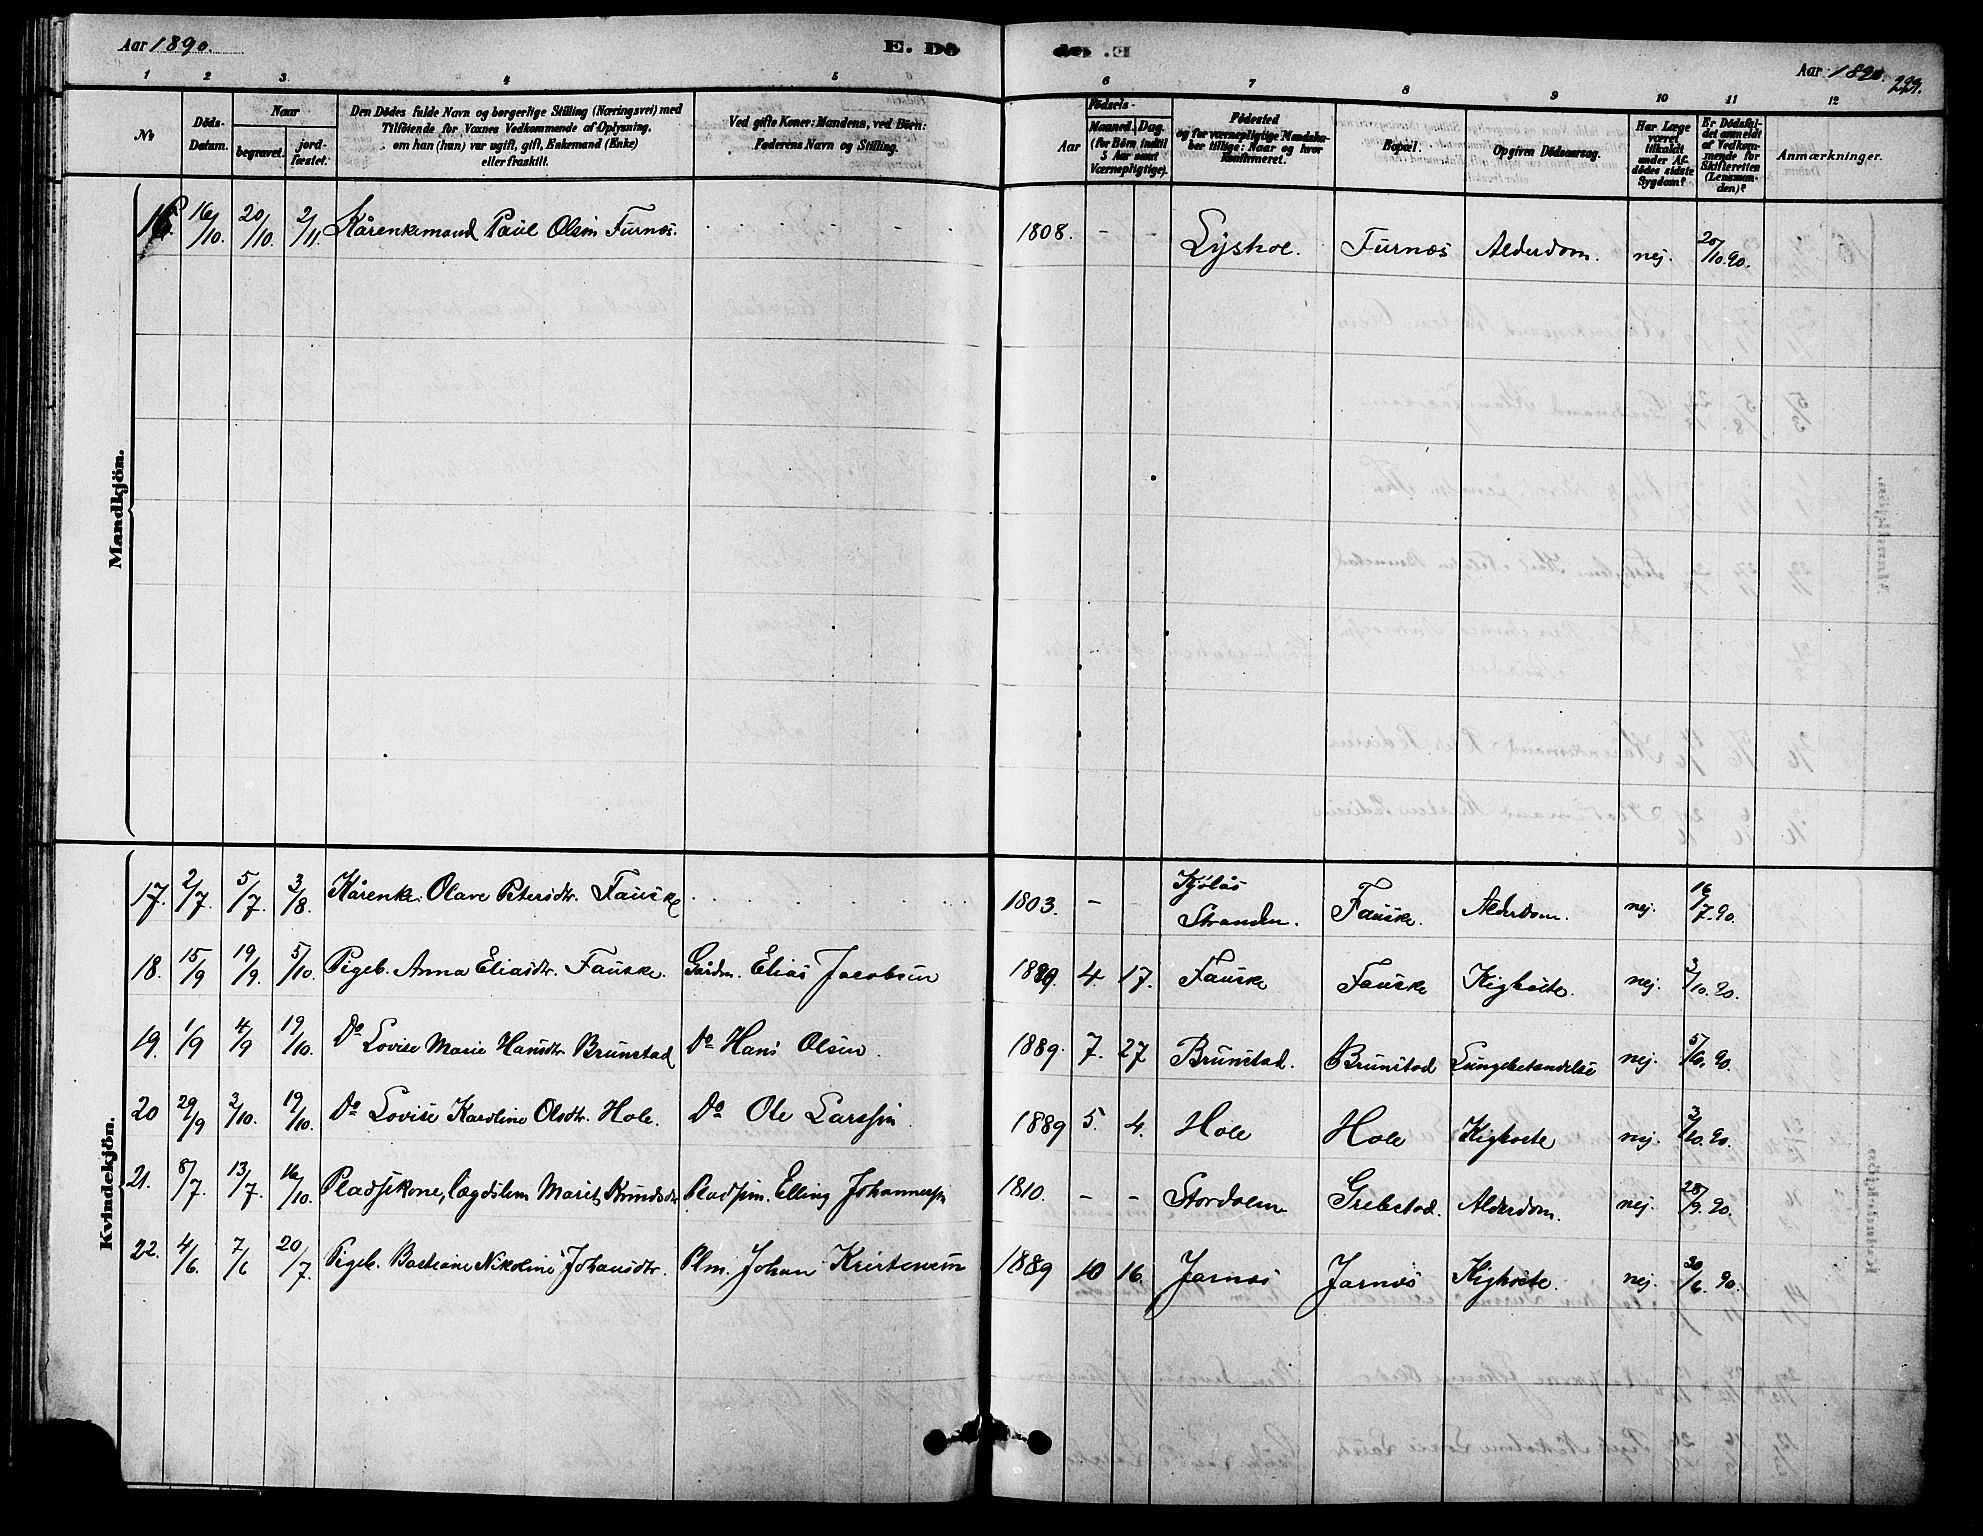 Aar 1890.
E. Dö
Aar 1890.
229.
1 2 3. 4 5 6 7 8 9 10 11 12
No
Döds-Datum.
Naar
begravet.
jord-fæstet.
Den Dödes fulde Navn og borgerlige Stilling (Næringsvei) med
Tilföiende for Voxnes Vedkommende af Oplysning,
om han (hun) var ugift, gift, Enkemand (Enke)
eller fraskilt.
Ved gifte Koner: Mandens, ved Börn:
Faderens Navn og Stilling.
Aar
Födsels-
Maaned. Dag.
(for Börn indtil
5 Aar samt
Værnepligtige).
Födested
og for værnepligtige Mandskaber tillige: Naar og hvor
Konfirmeret.
Bopæl.
Opgiven Dödsaarsag.
Har Læge
været
tilkaldt
under Af-
dödes sidste
Sygdom?
Er Dödsfal-
det anmeldt
af Vedkom-
mende for
Skifteretten
(Lensman-
den)?
Anmærkninger.
Mandkjön.
16. 16/10. 20/10. 2/11. Kårenkemand Paul Olsen Furnæs. 1808. - - Lyshol. Furnæs Alderdom. nej. 20/10.90.
Kvindekjön.
17. 2/7. 5/7. 3/8. Kårenke. Olave Petersdtr. Fauske 1803. - Kjølås Stranden. Fauske. Alderdom. nej. 16/7.90.
18. 15/9 19/9. 5/10. Pigeb. Anna Eliasdtr. Fauske. Gårdm. Elias Jacobsen 1889. 4. 17. Fauske Fauske Kighoste. nej. 3/10.90.
19. 1/9 4/9 19/10. Do Lovise Marie Hansdtr Brunstad Do Hans Olsen. 1889. 7. 27 Brunstad. Brunstad Lungebetændelse nej. 5/10.90.
20 29/9 2/10. 19/10. Do Lovise Karoline Olsdtr. Hole. Do Ole Larssen. 1889 5. 4. Hole Hole Kighoste nej. 3/10.90.
21. 8/7. 13/7. 16/10. Pladskone, lægdslem Marit Knudsdtr Pladsm. Elling Johannessen 1810. - - Stordalen Grebstad. Alderdom. nej. 28/9.90.
22. 4/6. 7/6 20/7. Pigeb. Bastiane Nikoline Johansdtr. Plm. Johan Kristensen 1889 10 16. Jarnes Jarnes Kighoste. nej. 30/6.90.